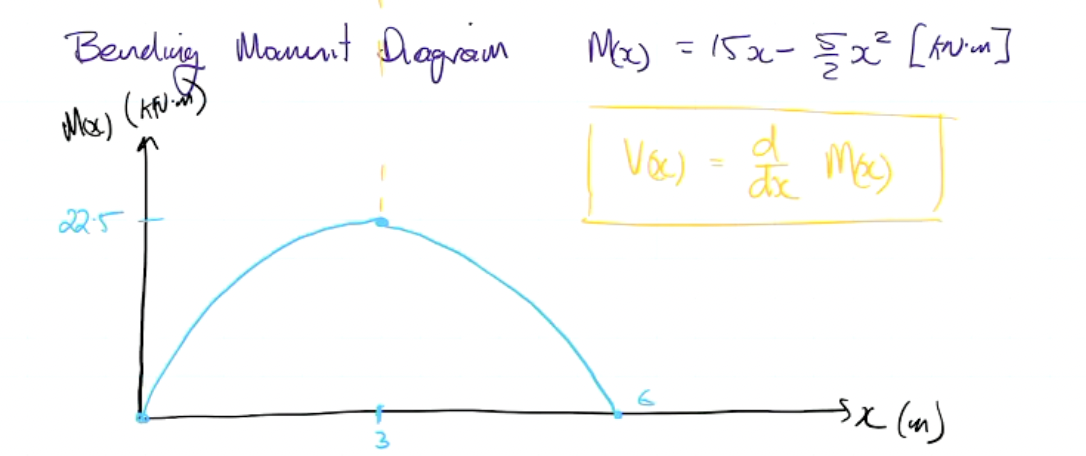 Bending Moment Diagram M(x) = 15x - 5/2 x² [kN·m]
M(x) (kN·m)
V(x) = d/dx M(x)
22.5
6
x (m)
3